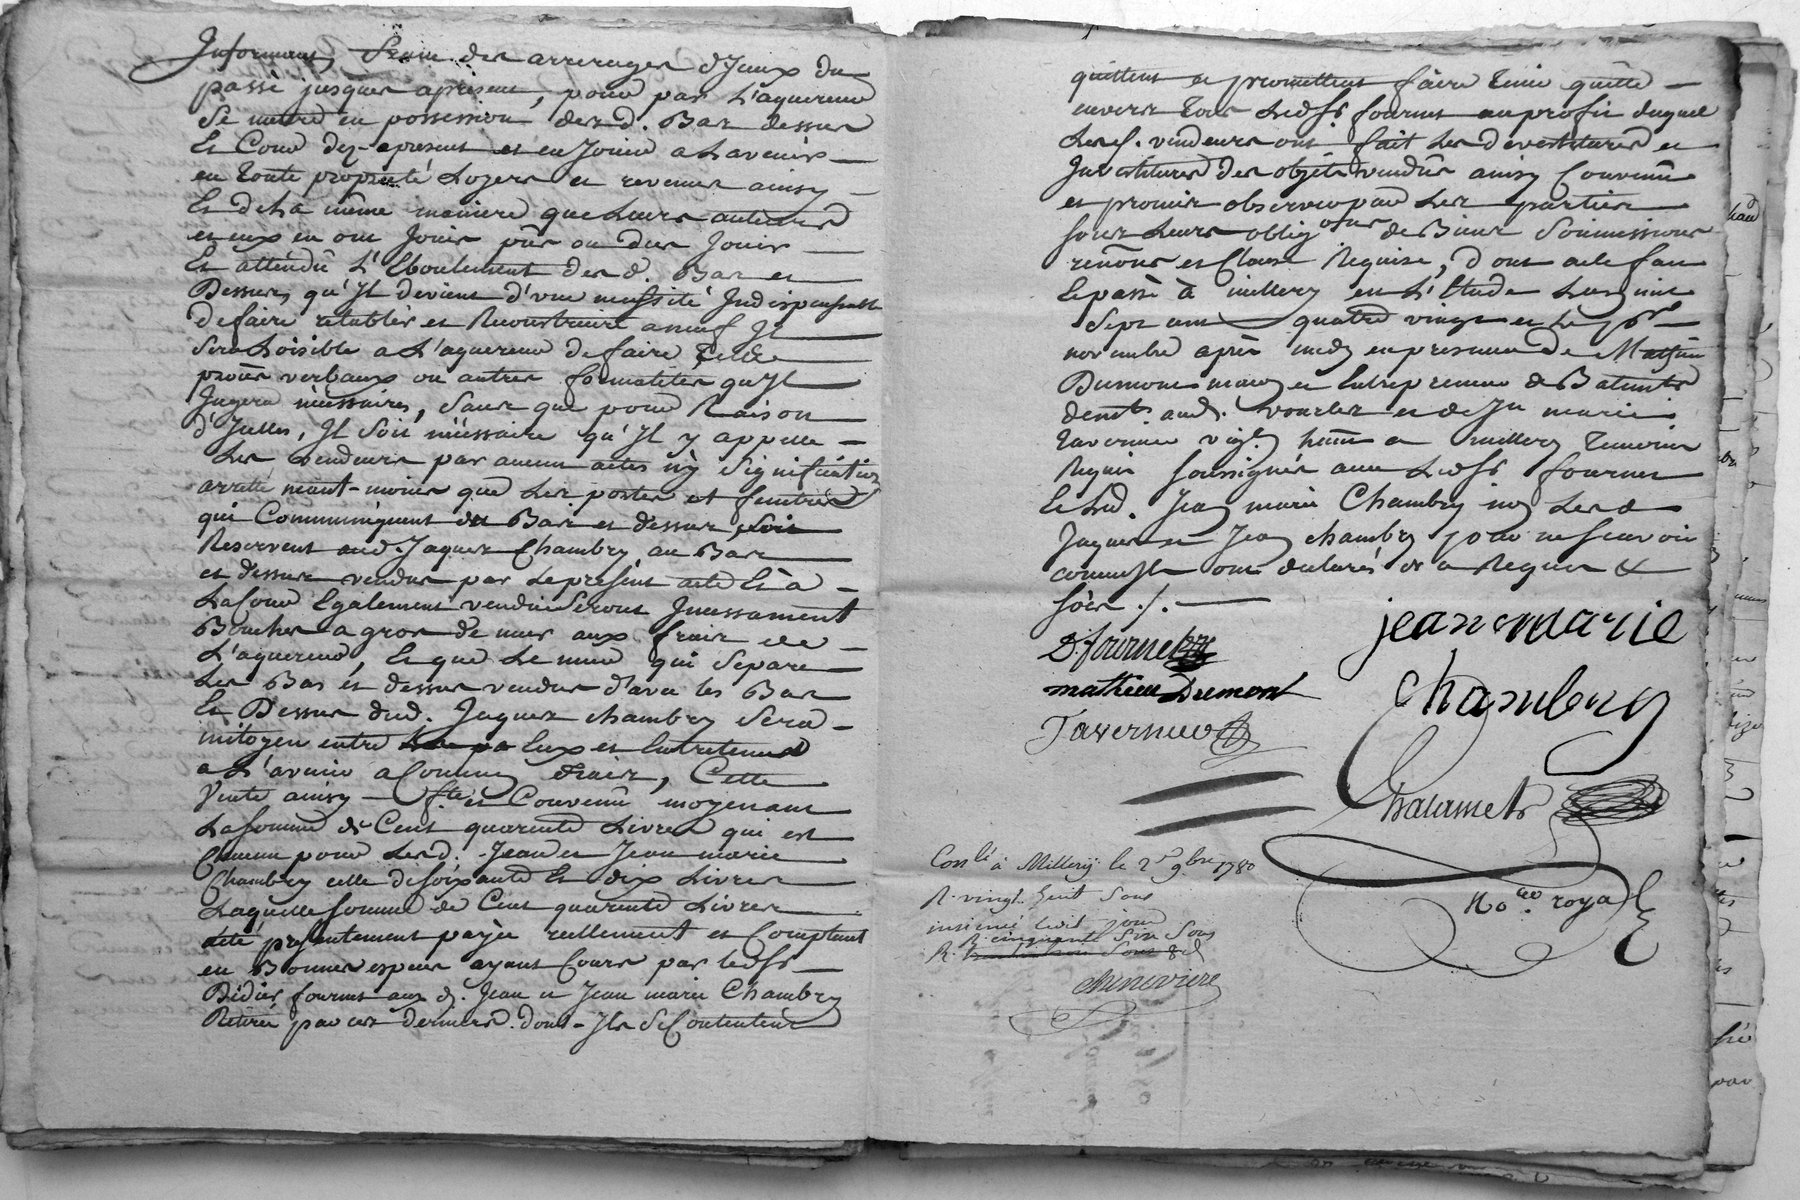 des arrerages d'Jceux du
passé jusques apresent, pour par L'aquereur
Se mettre en possession desd. Bas dessus
Et Cour dez-apresent et en Jouir a Lavenir
en toute proprieté Loyers et revenus ainsy
Et de La même maniere que Leurs auteurs
et eux en ont Joüis pûs ou dus Joüir
Et attendû L'Eboulement desd. Bas et
Dessus, qu'Jl devient d'une nessité Jndispensable
de faire retablir et Reconstruire a neuf Jl
Sera Loisible a L'aquereur de faire telle
procès verbaux ou autres formalités qu'Jl
Jugera nécessaires, Sans que pour Raison
d'Jcelles, Jl Soit nécessaire qu'Jl y appelle
Les vendeurs par aucun actes ny Signification
arreté neant-moins que Les portes et fenetres
qui Communiquent du Bas et dessus
Reservent aud. Jaques Chambry au Bas
et dessus vendus par Le présent acte Et à
La Cour Egalement vendue Seront Jncessament
Bouchés a gros de murs aux frais de
L'aquereur, Et que Le mur qui Separe
Les Bas et dessus vendus d'avec les Bas
Et Dessus dud. Jaques Chambry Sera
mitoyen entre Eux et Entretenu
a L'avenir a Commun fraix, Cette
Vente ainsy fte et Convenüe moyenant
La Somme de Cent quarente Livres qui est
Chacun pour Lesd. Jean et Jean marie
Chambry celle de Soixante Et dix Livres
Laquelle Somme de Cent quarente Livres
a été présentement payée réellement et Comptant
en Bonnes especes ayant Cours par led Sr
Didier fournet aux d. Jean et Jean marie Chambry
Retirée par ces derniers. dont Jls Se Contentent
quittent et promettent faire tenir quitte
envers tous Led Sr fournet au profit duquel
Lesd. vendeurs ont fait Les devestitures et
Jnvestitures des objets vendûs ainsy Convenû
et promis observer par Les parties
Sous Leurs obligons de Biens Soumissions
renons et Clause Requise, dont acte fait
Et passé à millery en L'Etude Lan mil
Sept cent quatre vingt et Le
novembre après midy en presence de Mathieu
Dumont maçon et Entrepreneur de Batiments
demt aud. et de Jn marie
Tavernier vign à millery temoins
Requis Soussignés avec Led Sr fournet
Et Led. Jean marie Chambry non Lesd
Jaques et Jean chambry pour ne Scavoir
comme Jls ont declarés de ce Requis &
Soés ./.
D. fournet
jean marie
Chambery
mathieu Dumont
Tavernier
Chalamets
Nore royal
Conlé à Millery le 2e 9bre 1780
R. vingt huit Sous
insinué led. jour
R. cinquante Six Sous
Chinevière